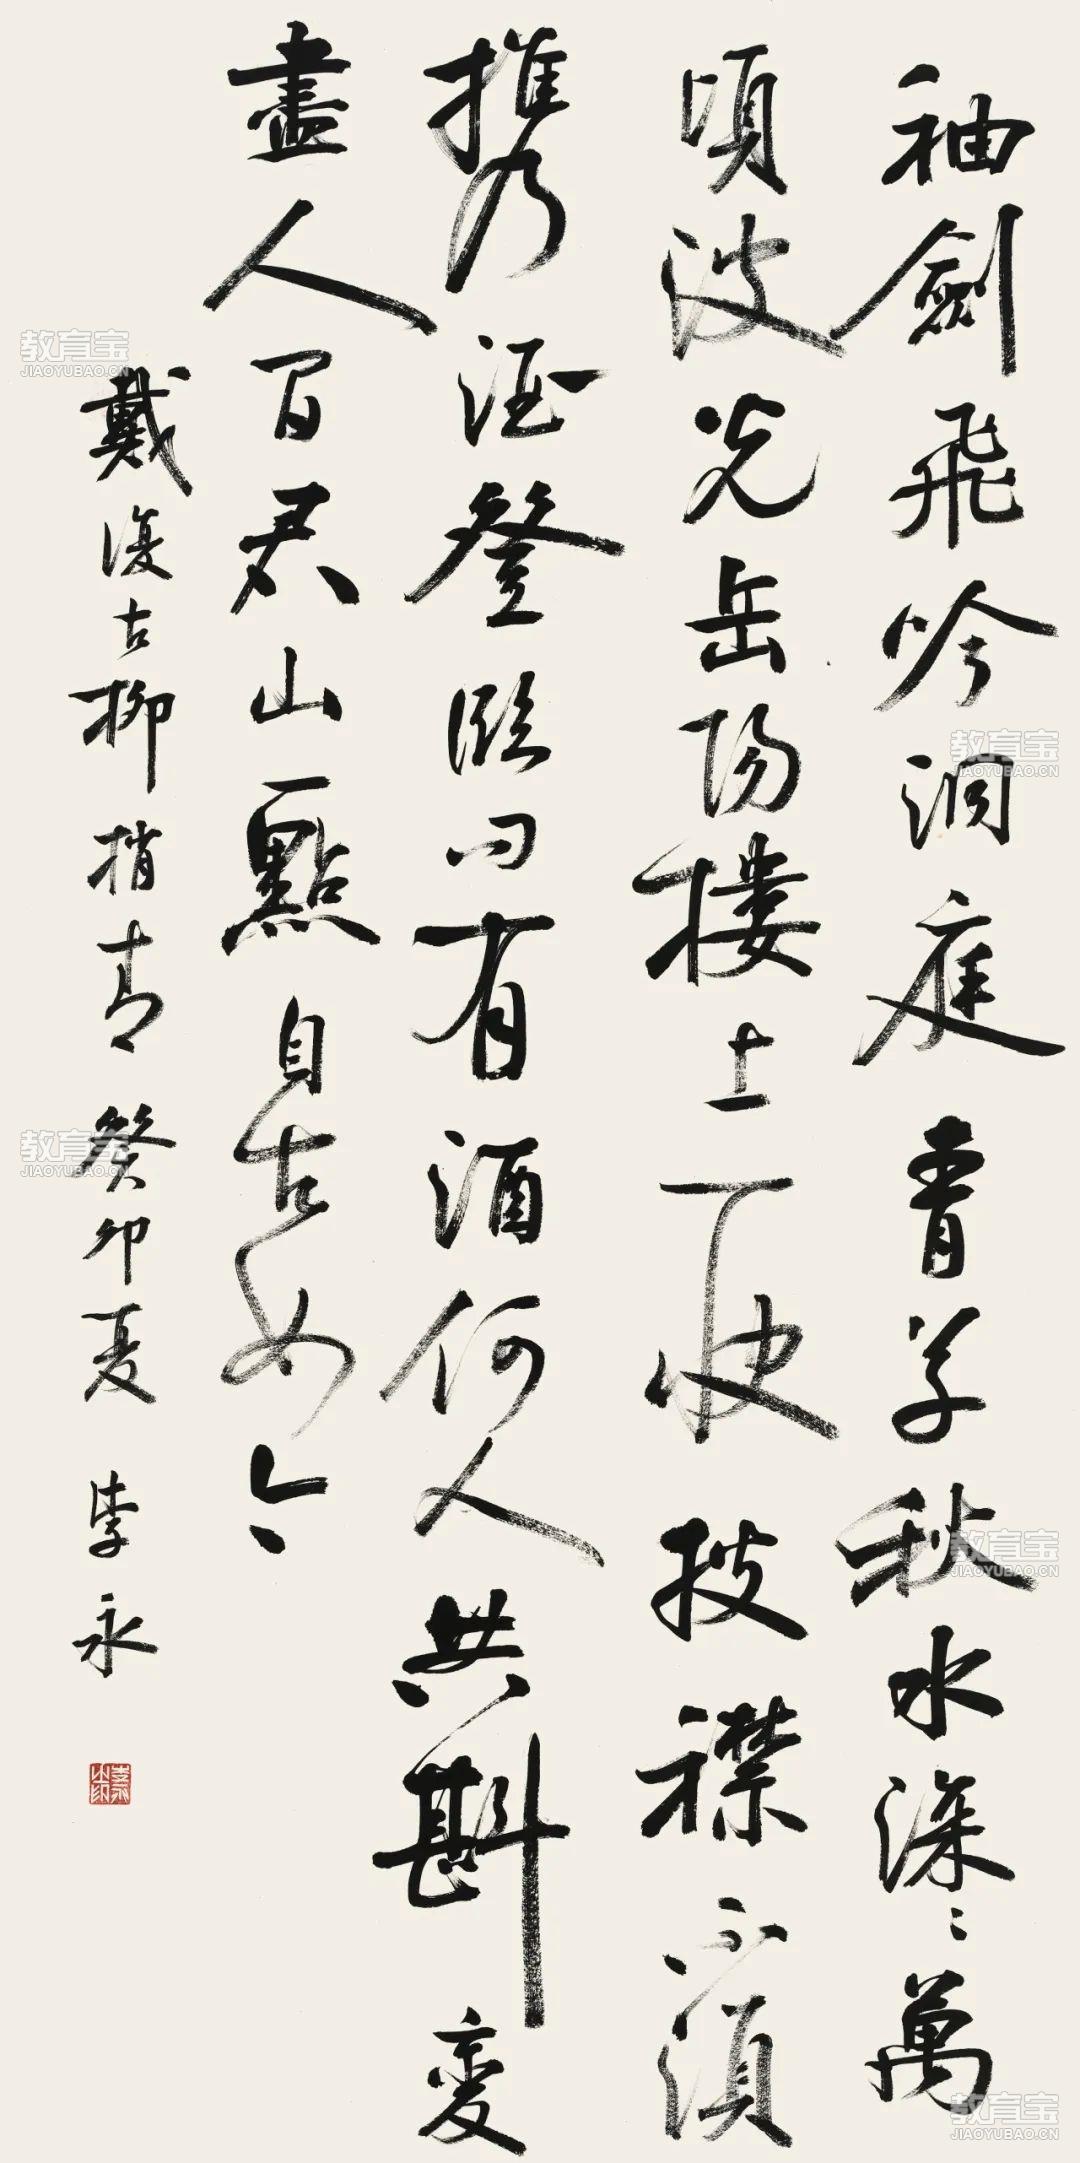 袖劍飛吟洞庭青草秋水深々萬
頃波光岳陽樓上一快披襟不須
携酒登臨問有酒何人共斟變
盡人間君山一點自古如今
戴復古柳梢青 癸卯夏 李永
教育宝
JIAOYUBAO.CN
教育宝
JIAOYUBAO.CN
教育宝
JIAOYUBAO.CN
教育宝
JIAOYUBAO.CN
教育宝
JIAOYUBAO.CN